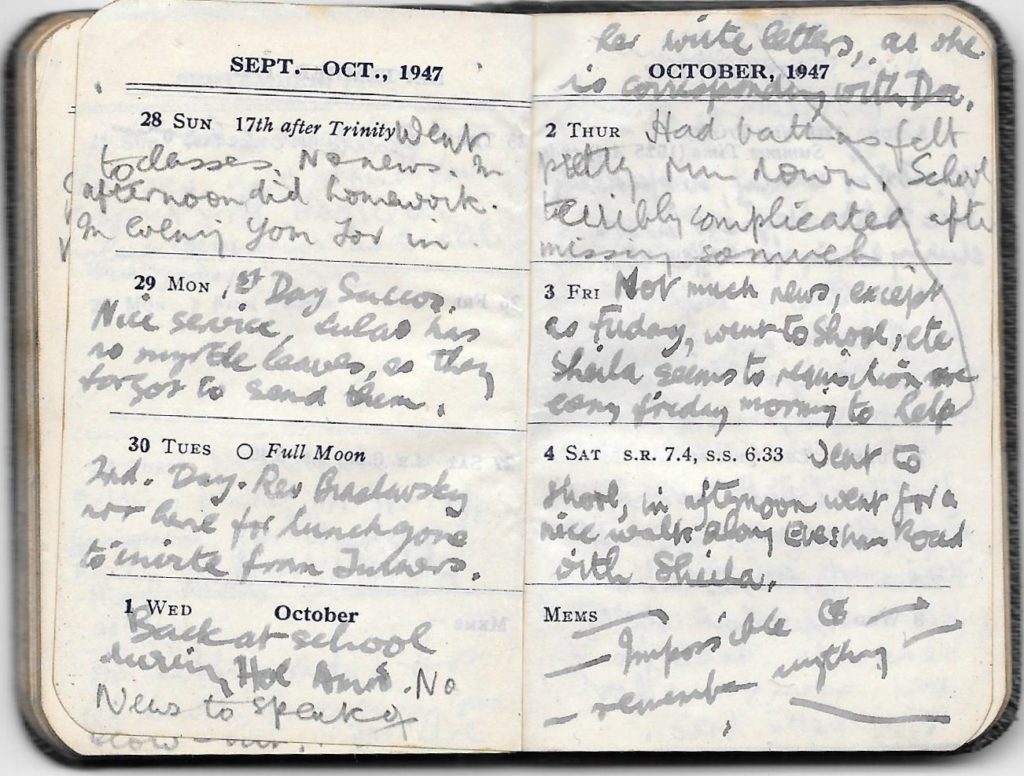 SEPT.—OCT., 1947
28 SUN 17th after Trinity Went
to classes. No news. In
afternoon did homework.
In evening Yom Tov in
29 MON 1st Day Succos.
Nice service, Lulao has
no myrtle leaves, as they
forgot to send them.
30 TUES Full Moon
2nd. Day. Rev Braslavsky
not here for lunch gone
to invite from
1 WED October
Back at school
during Hol . No
News to speak of
her write letters, as she
OCTOBER, 1947
is corresponding with
2 THUR Had bath as felt
pretty run down. School
terribly complicated afte
missing so much
3 FRI Not much news, except
as friday, went to Shool, etc
Sheila seems to requisition me
every friday morning to help
4 SAT S.R. 7.4, S.S. 6.33 Went to
Shool, in afternoon went for a
nice walk along Evesham Road
with Sheila.
MEMS
Impossible to
remember anything